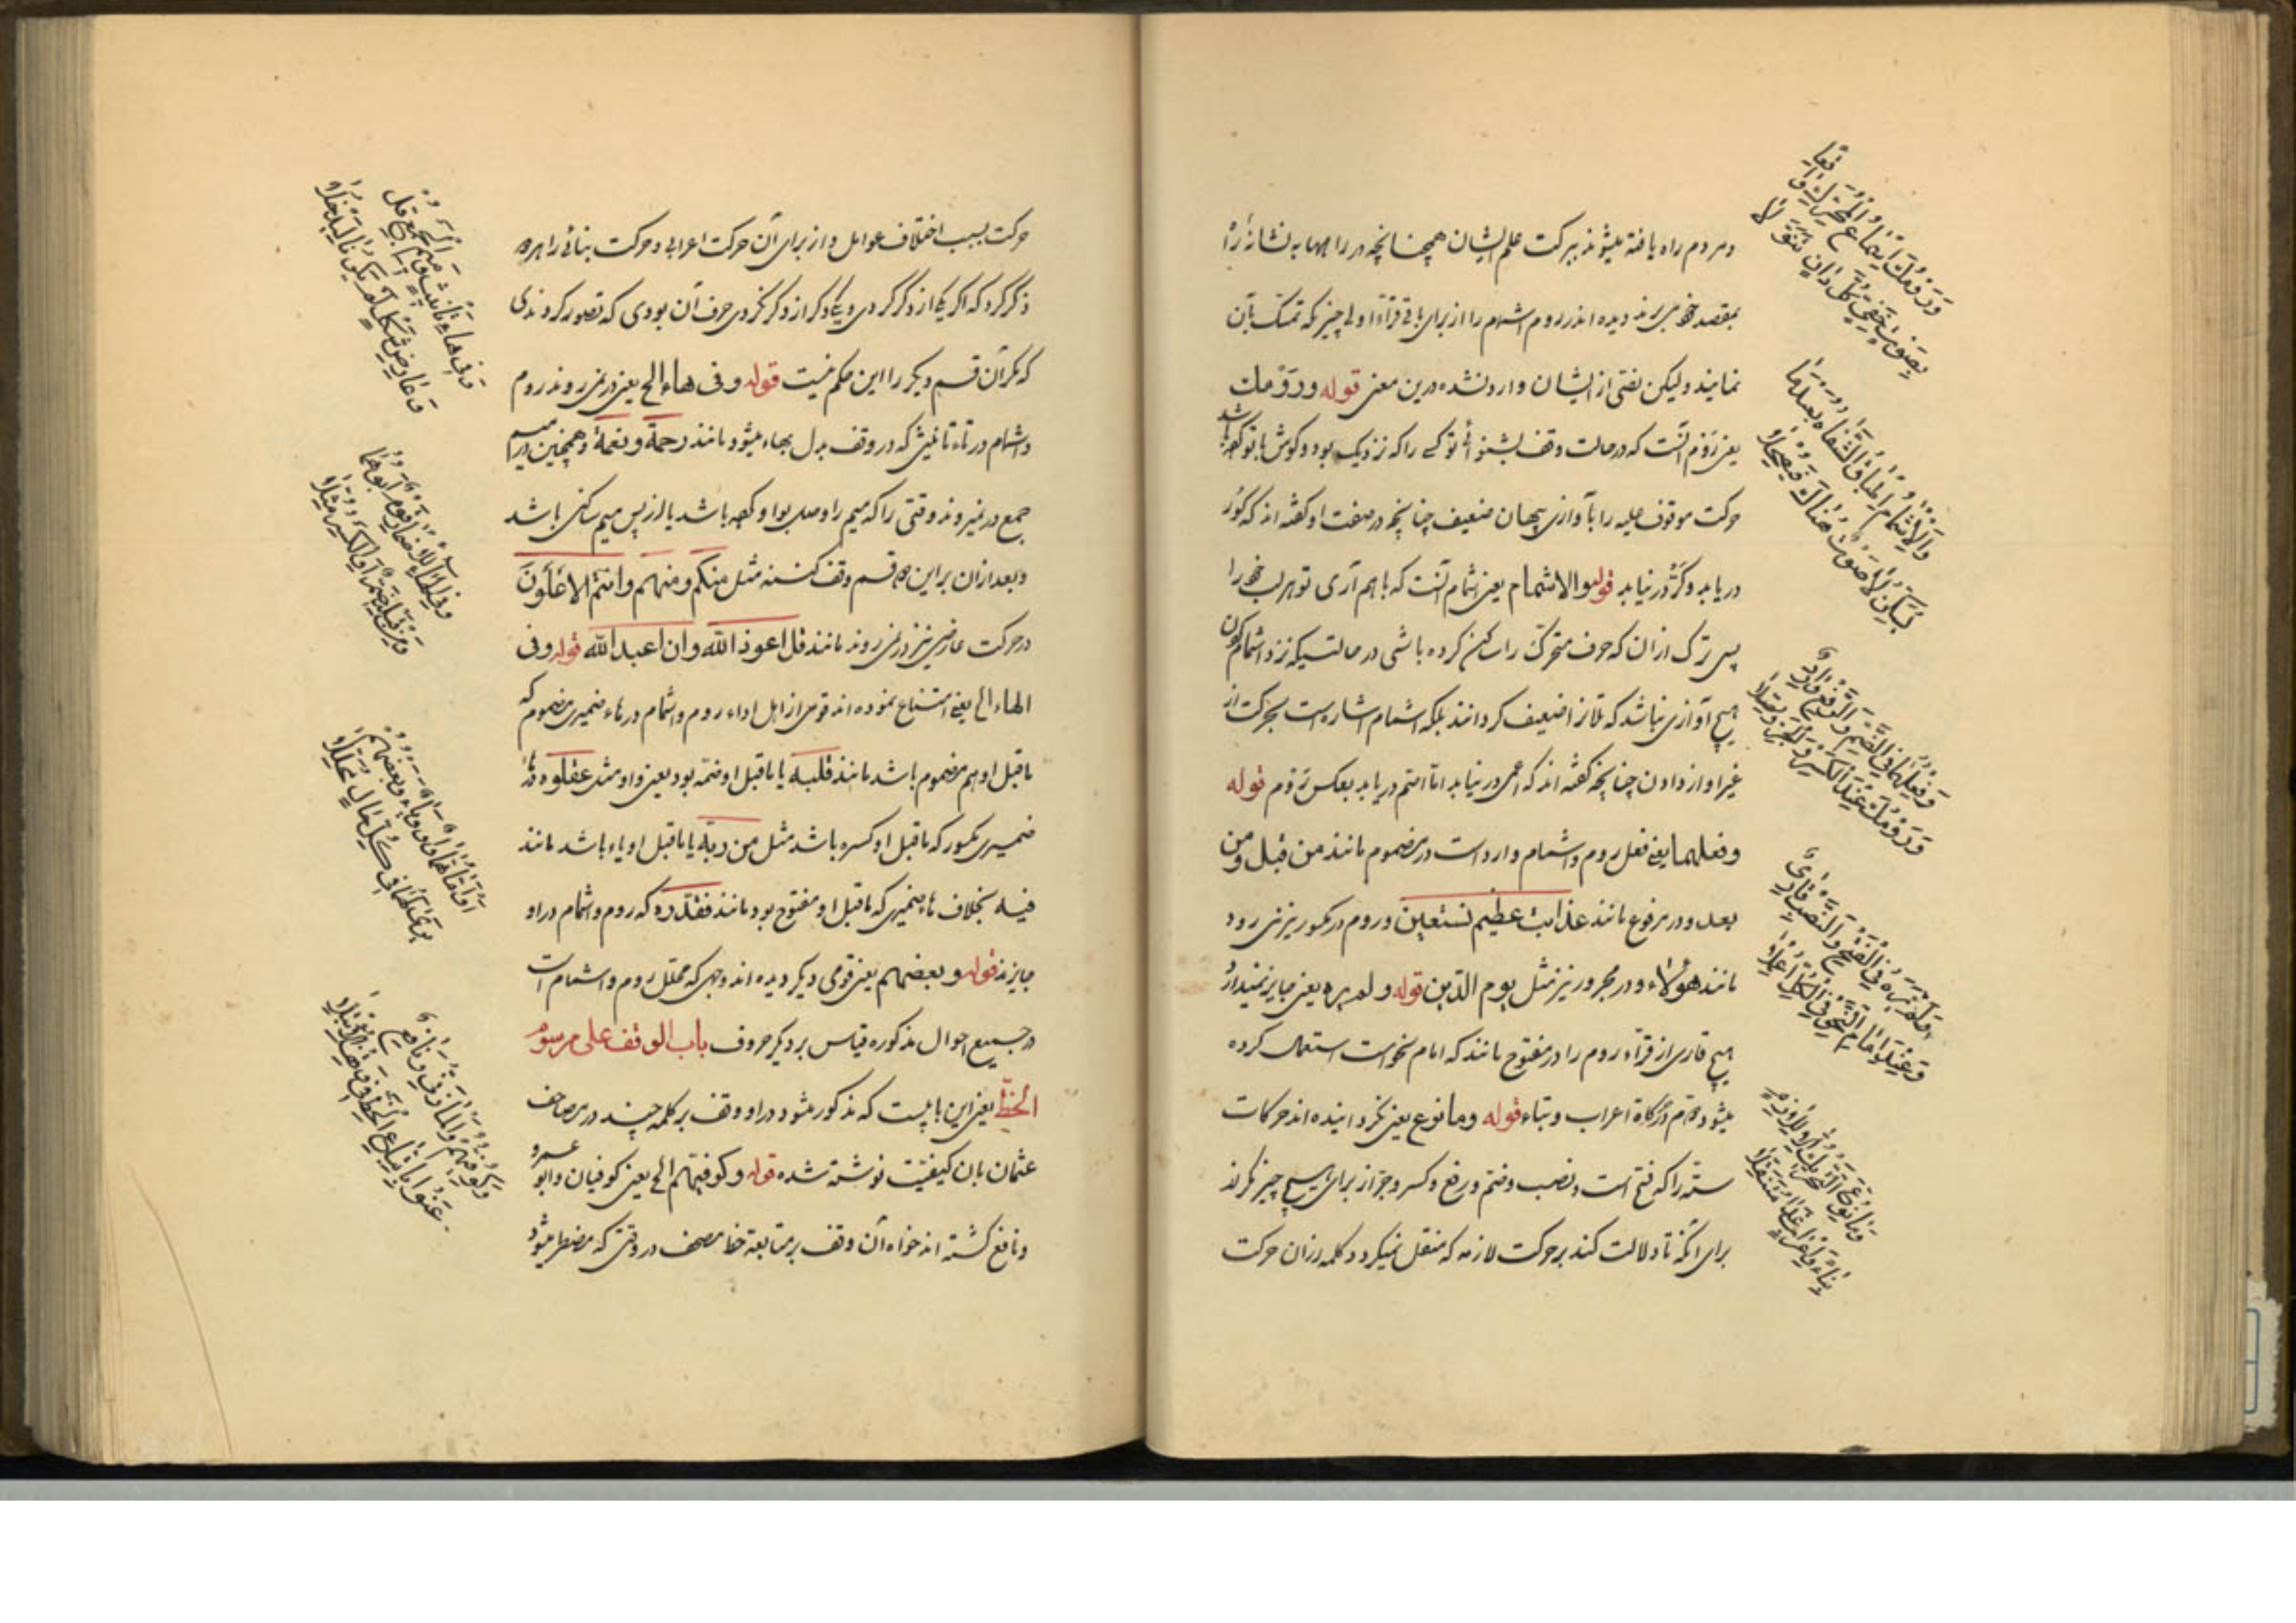 ومردم راه یافته میشوند ببرکت علم ایشان همچنانچه در راهها به نشانه راه
بمقصد خود میرسند دیده اند روم اشمام را از برای باقی قراء اولی چیز که تمسک بآن
نمایند ولیکن نصی از ایشان وارد نشده درین معنی قوله ورومك
یعنی روم آنست که در حالت وقف بشنوانی تو کسی را که نزدیک بود وگوش با تو کرده باشد
حرکت موقوف علیه را بآوازی پنهان ضعیف چنانچه در صفت او گفته اند که کور
دریابد وکر در نیابد قوله والاشمام یعنی اشمام آنست که باهم آری تو هر لب خود را
پس ترک ازان که حرف متحرک را ساکن کرده باشی در حالتیکه نزد اشمام کون
هیچ آوازی نباشد که تا آنرا ضعیف گردانند بلکه اشمام اشارت است بحرکت از
غیر آواز دادن چنانچه گفته اند که اعمی در نیابد اما اصم دریابد بعکس روم قوله
وفعلهما یعنی فعل روم واشمام وارد است در مضموم مانند من قبل ومن
بعد ودر مرفوع مانند عذاب عظیم نستعین وروم در مکسور نیز می رود
مانند هؤلاء ودر مجرور نیز مثل یوم الدین قوله ولم یره یعنی جایز نمیدارد
هیچ قاری از قراء روم را در مفتوح مانند که امام نحو است استعمال کرده
میشود روم در کافه اعراب وبناء قوله وما نوع یعنی نگردانیده اند حرکات
سته را که فتح است ونصب وضم ورفع وکسر وجر از برای هیچ چیز مگر نه
برای آنکه تا دلالت کند بر حرکت لازمه که منتقل نمیگردد کلمه ازان حرکت
ورومك إسماع المحرك واقفا
بصوت خفي كل دان تنولا
والاشمام إطباق الشفاه بعيد ما
يسكن لا صوت هناك فيصحلا
وفعلهما في الضم والرفع وارد
ورومك عند الكسر والجر وصلا
ولم يره في الفتح والنصب قارئ
وعند إمام النحو في الكل أعملا
وما نوع التحريك إلا للازم
بناء وإعرابا غدا متنقلا
حرکت بسبب اختلاف عوامل واز برای آن حرکت اعرابی وحرکت بنائی را بهره
ذکر کرد که اگر یکی از ذکر کردی ویکی دیگر از ذکر نکردی حرف آن بودی که تصور کردندی
که مگر آن قسم دیگر را این حکم نیست قوله وفی هاء الخ یعنی در نمی روند روم
واشمام در تاء تانیثی که در وقف بدل بهاء میشود مانند رحمة ونعمة وهمچنین در میم
جمع در نمیروند وقتی را که میم را وصل بواو کرده باشد یا از پس میم ساکنی باشد
وبعد ازان براین قسم وقف کنند مثل منکم ومنهم وانتم الاعلون
در حرکت عارضی نیز در نمی روند مانند قل اعوذ الله وان اعبد الله قوله وفی
الهاء الخ یعنی امتناع نموده اند قومی از اهل اداء روم واشمام در هاء ضمیری مضموم که
ماقبل او هم مضموم باشد مانند قلبه یا ماقبل او ضمه بود یعنی واو مثل عقلوه ودر هاء
ضمیری مکسور که ماقبل او کسره باشد مثل من ربه یا ماقبل او یاء باشد مانند
فیه بخلاف هاء ضمیری که ماقبل او مفتوح بود مانند فقدره که روم واشمام در او
جایزند قوله وبعضهم یعنی قومی دیگر دیده اند وجهی که محلل روم واشمام است
در جمیع احوال مذکوره قیاس بر دیگر حروف باب الوقف علی مرسوم
الخط یعنی این بابیست که مذکور میشود در او وقف بر کلمه چند در مصاحف
عثمان بآن کیفیت نوشته شده قوله وکوفیهم الخ یعنی کوفیان وابو عمرو
ونافع گشته اند خواه آن وقف بر متابعة خط مصحف در وقتی که مضطر میشود
وفي هاء تأنيث وميم الجميع قل
وعارض شكل لم يكونا ليدخلا
وفي الهاء للإضمار قوم أبوهما
ومن قبله ضم أو الكسر مثلا
أو اما هما واو وياء وبعضهم
يرى لهما في كل حال محللا
وكوفيهم والمازني ونافع
عنوا باتباع الخط في وقف الابتلا